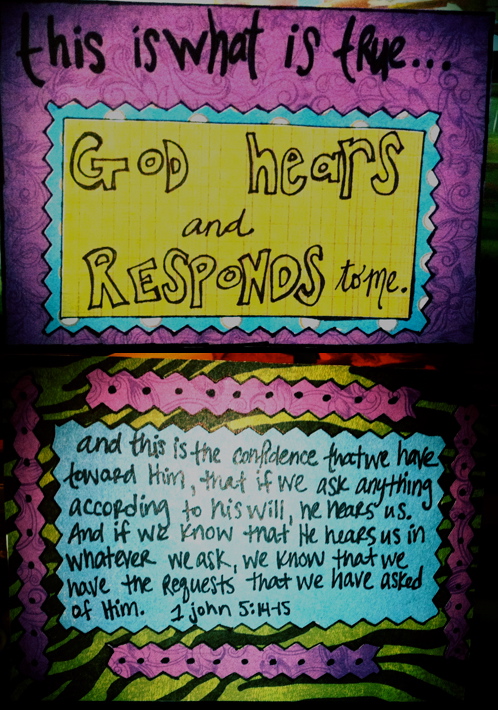 this is what is true...
GOD hears
and
RESPONDS to me.
and this is the confidence that we have
toward Him, that if we ask anything
according to his will, he hears us.
And if we know that He hears us in
whatever we ask, we know that we
have the requests that we have asked
of Him. 1 john 5:14-15